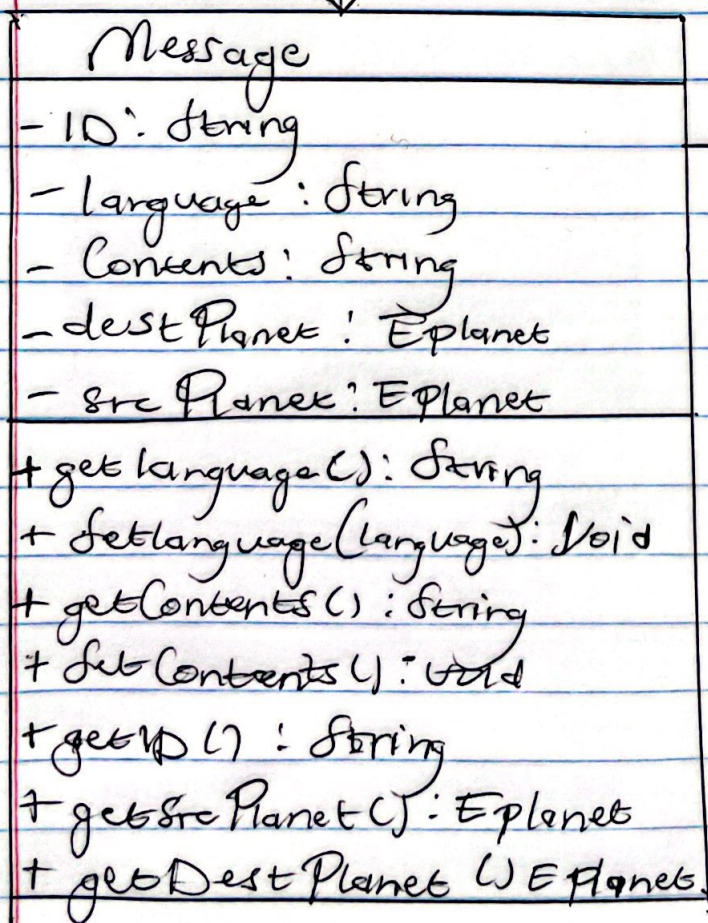 Message
- ID: String
- language : String
- Contents: String
- destPlanet : Eplanet
- srcPlanet: EPlanet
+ getlanguage(): String
+ Setlanguage(language): Void
+ getContents() : String
+ SetContents() : void
+ getID() : String
+ getsrcPlanet(): Eplanet
+ getDestPlanet () EPlanet.